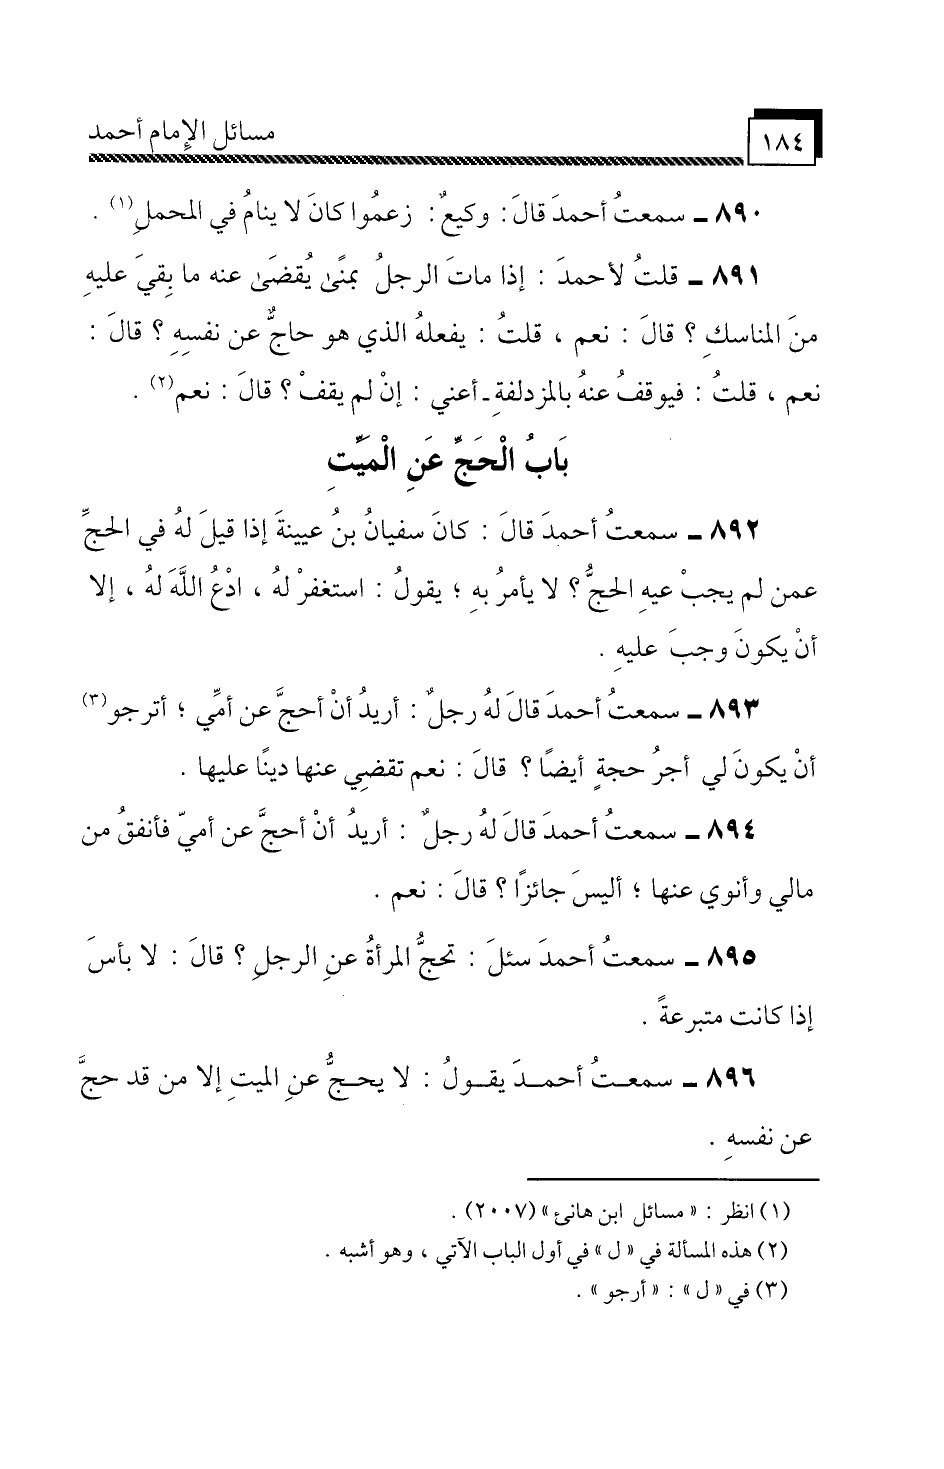 ١٨٤
مسائل الإمام أحمد
٨٩٠ ـ سمعتُ أحمدَ قالَ : وكيعٌ : زعمُوا كانَ لا ينامُ في المحملِ(١) .
٨٩١ ـ قلتُ لأحمدَ : إذا ماتَ الرجلُ بمنًى يُقضَىٰ عنه ما بقيَ عليهِ
منَ المناسكِ ؟ قالَ : نعم ، قلتُ : يفعلهُ الذي هو حاجٌّ عن نفسِهِ ؟ قالَ :
نعم ، قلتُ : فيوقفُ عنهُ بالمزدلفةِ ـ أعني : إنْ لم يقفْ ؟ قالَ : نعم(٢) .
بَابُ الْحَجِّ عَنِ الْمَيِّتِ
٨٩٢ ـ سمعتُ أحمدَ قالَ : كانَ سفيانُ بنُ عيينةَ إذا قيلَ لهُ في الحجِّ
عمن لم يجبْ عيهِ الحجُّ ؟ لا يأمرُ بهِ ؛ يقولُ : استغفرْ لهُ ، ادْعُ اللَّهَ لهُ ، إلا
أنْ يكونَ وجبَ عليهِ .
٨٩٣ ـ سمعتُ أحمدَ قالَ لهُ رجلٌ : أريدُ أنْ أحجَّ عن أمِّي ؛ أترجو(٣)
أنْ يكونَ لي أجرُ حجةٍ أيضًا ؟ قالَ : نعم تقضي عنها دينًا عليها .
٨٩٤ ـ سمعتُ أحمدَ قالَ لهُ رجلٌ : أريدُ أنْ أحجَّ عن أميّ فأنفقُ من
مالي وأنوي عنها ؛ أليسَ جائزًا ؟ قالَ : نعم .
٨٩٥ ـ سمعتُ أحمدَ سئلَ : تحجُّ المرأةُ عنِ الرجلِ ؟ قالَ : لا بأسَ
إذا كانت متبرعةً .
٨٩٦ ـ سمعتُ أحمدَ يقولُ : لا يحجُّ عنِ الميتِ إلا من قد حجَّ
عن نفسهِ .
(١) انظر : « مسائل ابن هانئ » (٢٠٠٧) .
(٢) هذه المسألة في « ل » في أول الباب الآتي ، وهو أشبه .
(٣) في « ل » : « أرجو » .